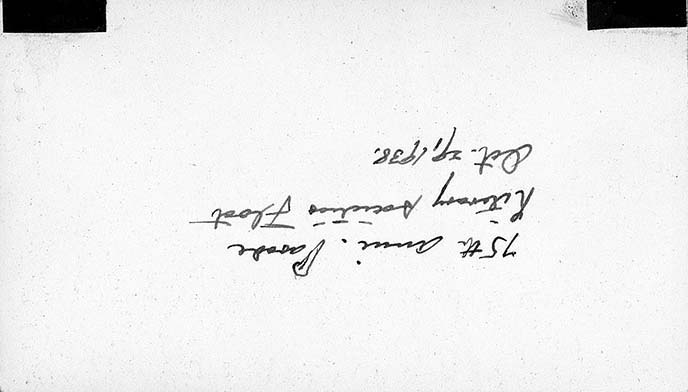 75th Anni. Parade
Literary Societies Float
Oct. 29, 1938.